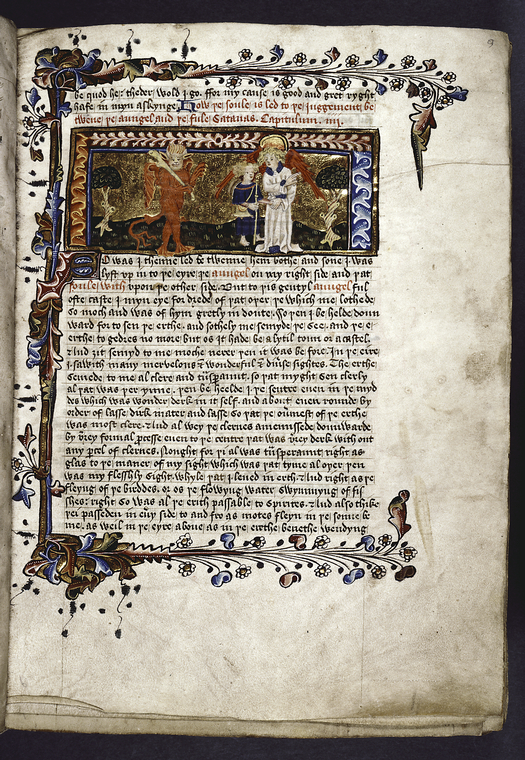 9
be quod he: theder wold I go. ffor my cause is good and gret ryght
hafe in myn askynge. How þe soule is led to þe juggement be
twene þe aungel and þe fule Satanas. Capitulum. iiij.
SO was I thenne led be twenne hem bothe and sone I was
lyft vp in to þe eyre þe aungel on my right side and þat
foule with vpon þe other side. But to þis gentyl aungel ful
ofte caste I myn eye for drede of þat oþer þe which me lothede
So moch and was of hym gretly in doute. So þen I be helde doun
ward for to sen þe erthe. and sothely me semyde þe See. and þe e
erthe to gedres no more but os it hade be a lytil toun or a castel.
And ȝit semyd to me moche nerer þen it was be fore. In þe eire
I sawith many mervelous & wonderful & diuerse sightes. The erthe
semede to me al clere and transparaunt. so þat myght I sen clerly
al þat was þer ynne. þen be heelde I þe sentre euen in þe myd
des which was wonder derk in it self. and about euen rounde by
ordre of lasse dirk mater and lasse so þat þe oumest of þe erthe
was most clere. And al wey þe clernes amenussede dounwarde
by verey formal processe euen to þe centre þat was verey derk with out
any parcel of clernes. Nought for þi al was transparaunt right as
glas to þe maner of my sight which was þat tyme al oþer þen
was my flesshly sight whyle þat I leued in erth. And right as þe
fleyng of þe birdes. or os þe flowyng water swymmyng of fis
shes: right so was al þe erth passable to spirites. And also thikke
þei passeden in euery side to and fro as motes fleyn in þe sonne be
me. as weil in þe eyre aboue as in þe erthe benethe wendyng